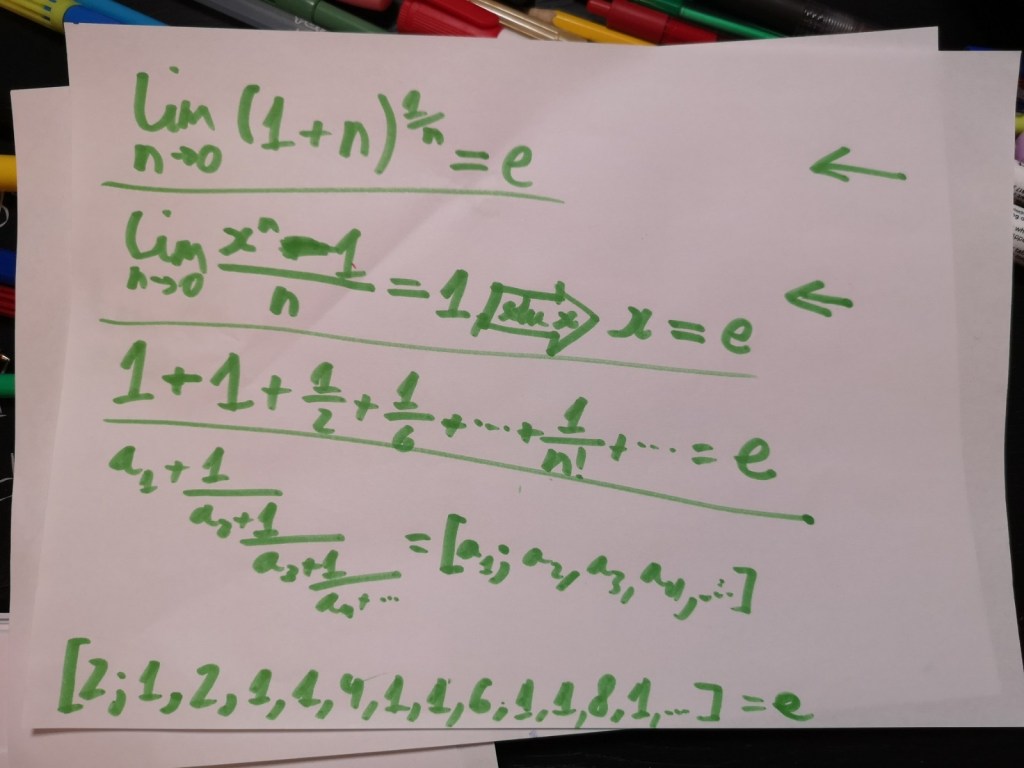 lim n→0 (1+n)^(1/n) = e ←
lim n→0 (x^n - 1)/n = 1 ⇒ x = e ←
1 + 1 + 1/2 + 1/6 + ... + 1/n! + ... = e
a₁ + 1/(a₂ + 1/(a₃ + 1/(a₄ + ...))) = [a₁; a₂, a₃, a₄, ...]
[2; 1, 2, 1, 1, 4, 1, 1, 6, 1, 1, 8, 1, ...] = e